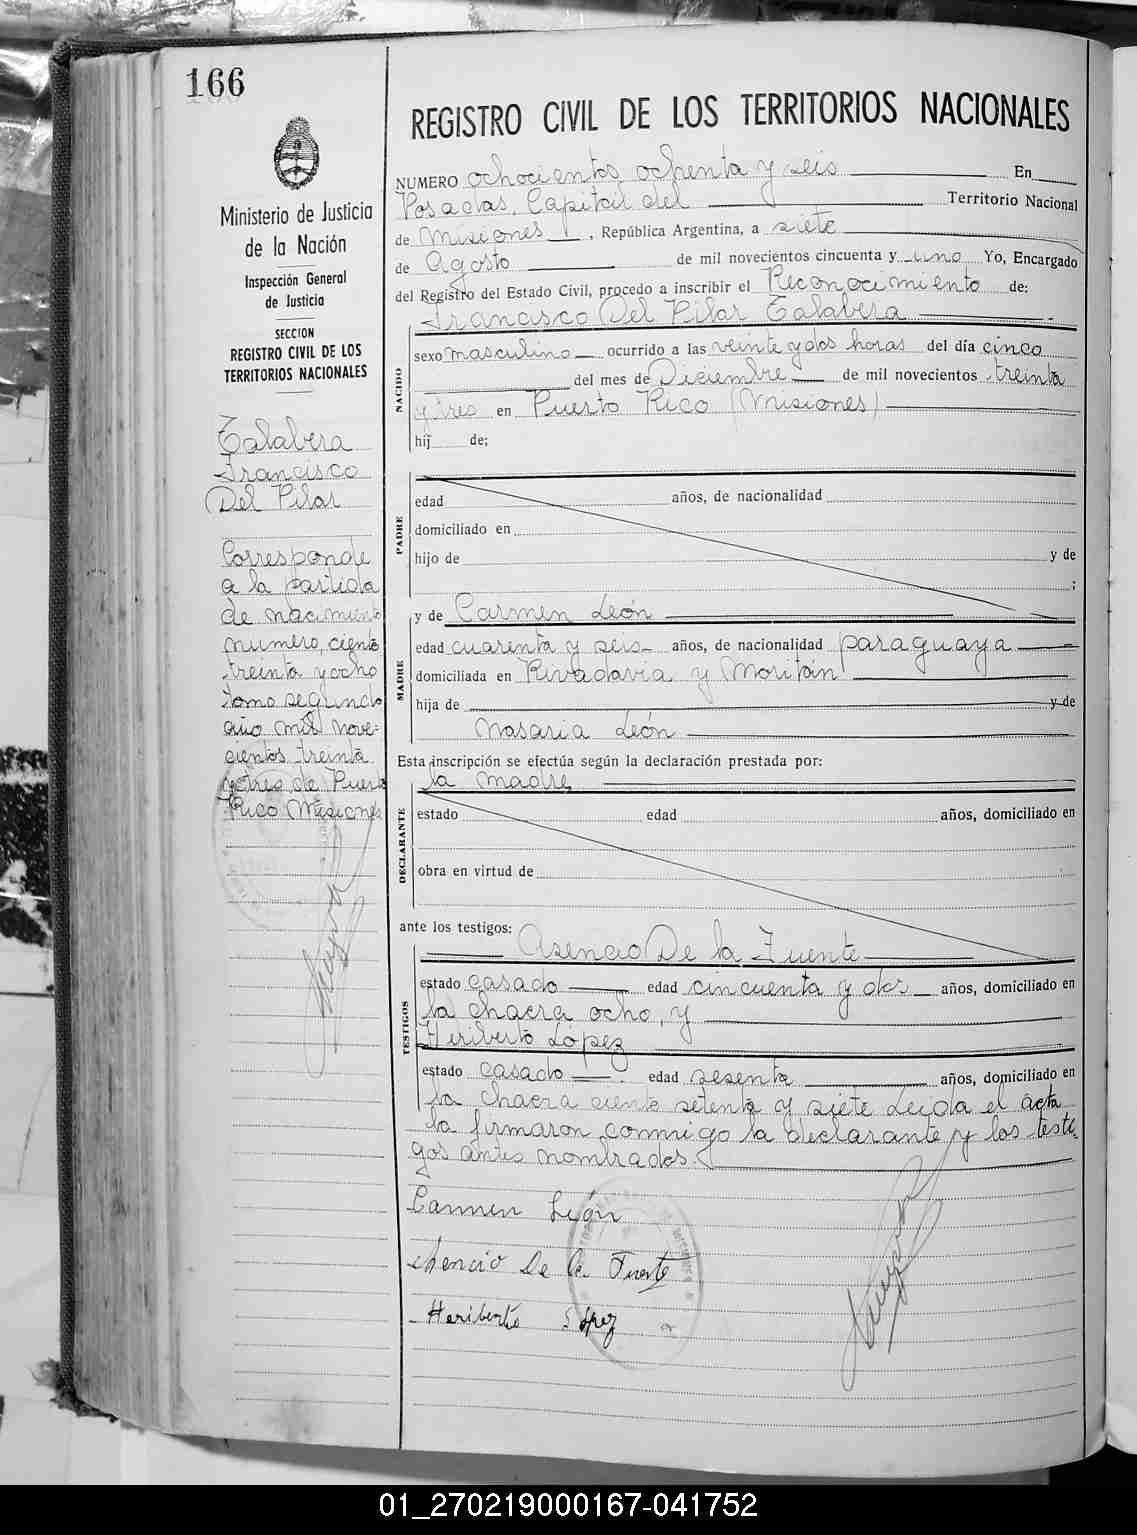 166
Ministerio de Justicia
de la Nación
Inspección General
de Justicia
SECCION
REGISTRO CIVIL DE LOS
TERRITORIOS NACIONALES
Talabera
Francisco
Del Pilar
Corresponde
a la partida
de nacimiento
numero, ciento
treinta y ocho
tomo segundo
año mil nove-
cientos treinta
y tres de Puerto
Rico Misiones
REGISTRO CIVIL DE LOS TERRITORIOS NACIONALES
NUMERO ochocientos ochenta y seis En
Posadas, Capital del Territorio Nacional
de Misiones, República Argentina, a siete
de Agosto de mil novecientos cincuenta y uno Yo, Encargado
del Registro del Estado Civil, procedo a inscribir el Reconocimiento de:
Francisco Del Pilar Talabera
NACIDO
sexo masculino ocurrido a las veinte y dos horas del día cinco
del mes de Diciembre de mil novecientos treinta
y tres en Puerto Rico (Misiones)
hij de;
PADRE
edad años, de nacionalidad
domiciliado en
hijo de y de
;
MADRE
y de Carmen León
edad cuarenta y seis años, de nacionalidad paraguaya
domiciliada en Rivadavia y Moritán
hija de y de
Nasaria León
Esta inscripción se efectúa según la declaración prestada por:
la madre
DECLARANTE
estado edad años, domiciliado en
obra en virtud de
ante los testigos:
Asencio De la Fuente
TESTIGOS
estado casado edad cincuenta y dos años, domiciliado en
la chacra ocho, y
Heriberto López
estado casado edad sesenta años, domiciliado en
la chacra ciento setenta y siete Leida el acta
la firmaron conmigo la declarante y los testi
gos antes nombrados.
Carmen León
Asencio De la Fuente
Heriberto López
01_270219000167-041752